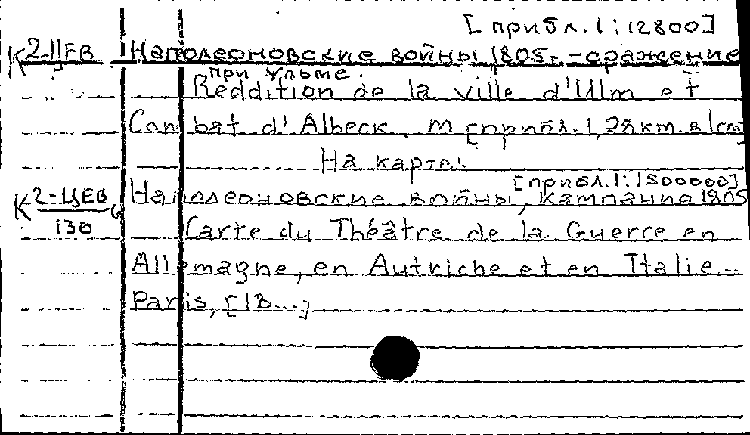 [прибл. 1:12800]
К 2-ЦЕВ Наполеоновские войны 1805г. - сражение
при Ульме.
Reddition de la ville d'Ulm et
Combat d'Albeck. M [прибл. 1,28км. в 1см]
На карте:
[прибл. 1:1500000]
К 2-ЦЕВ/130 Наполеоновские войны, кампания 1805
Carte du Théâtre de la Guerre en
Allemagne, en Autriche et en Italie.-
Paris, [18...]